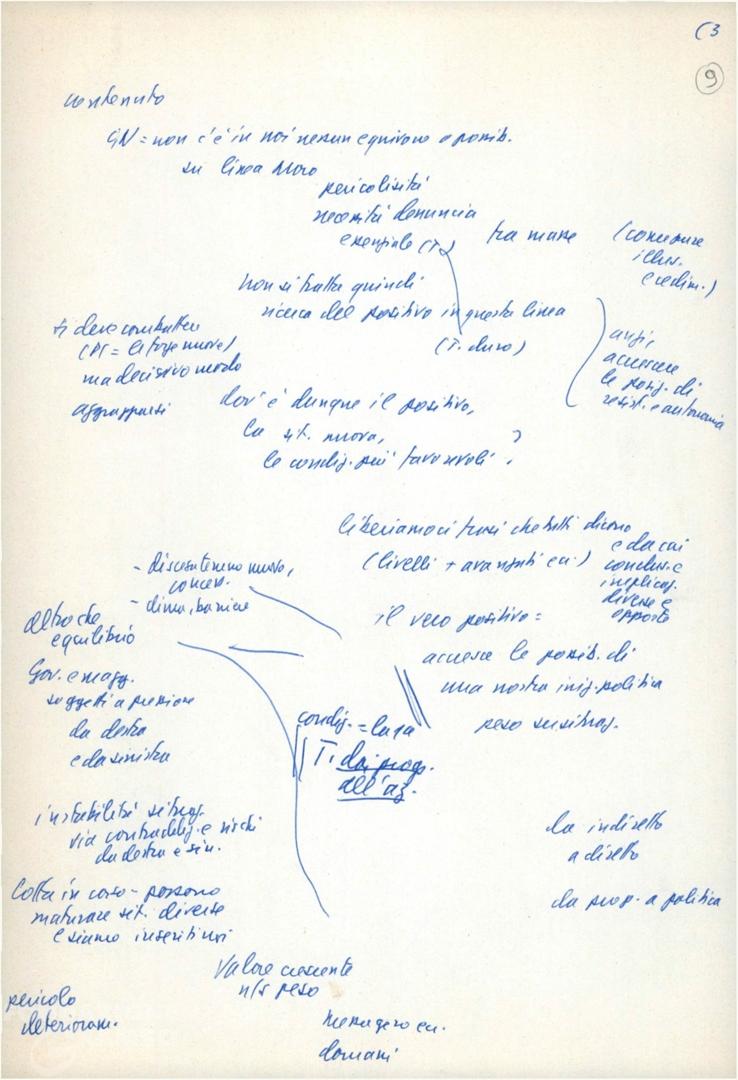 (3
9
contenuto
GN = non c'è in noi nessun equivoco o possib.
su linea Moro
pericolosità
necessità denuncia
essenziale (T.)
tra masse
(
illus.
e cedim.)
non si tratta quindi
ricerca del positivo in questa linea
(T. duro)
anzi,
accrescere
le posiz. di
resist. e autonomia
si deve combattere
(PC = le forze nuove)
ma decisivo modo
aggrapparsi
dov'è dunque il positivo,
la sit. nuova,
le condiz. più favorevoli ?
liberiamoci frasi che tutti dicono
(livelli + avanzati ecc.)
e da cui
conclus. e
implicaz.
diverse e
opposte
- discorso terreno nuovo,
concess.
- dimin. barriere
il vero positivo =
accresce le possib. di
una nostra iniz. politica
peso su situaz.
altro che
equilibrio
Gov. e magg.
soggetti a pressione
da destra
e da sinistra
condiz. = la 1a
T. dai prog.
all'az.
instabilità situaz.
via contraddiz. e rischi
da destra e sin.
da indiretto
a diretto
da prop. a politica
lotta in corso - possono
maturare sit. diverse
e siamo inseriti noi
valore crescente
n/s peso
pericolo
deterioram.
ecc.
domani